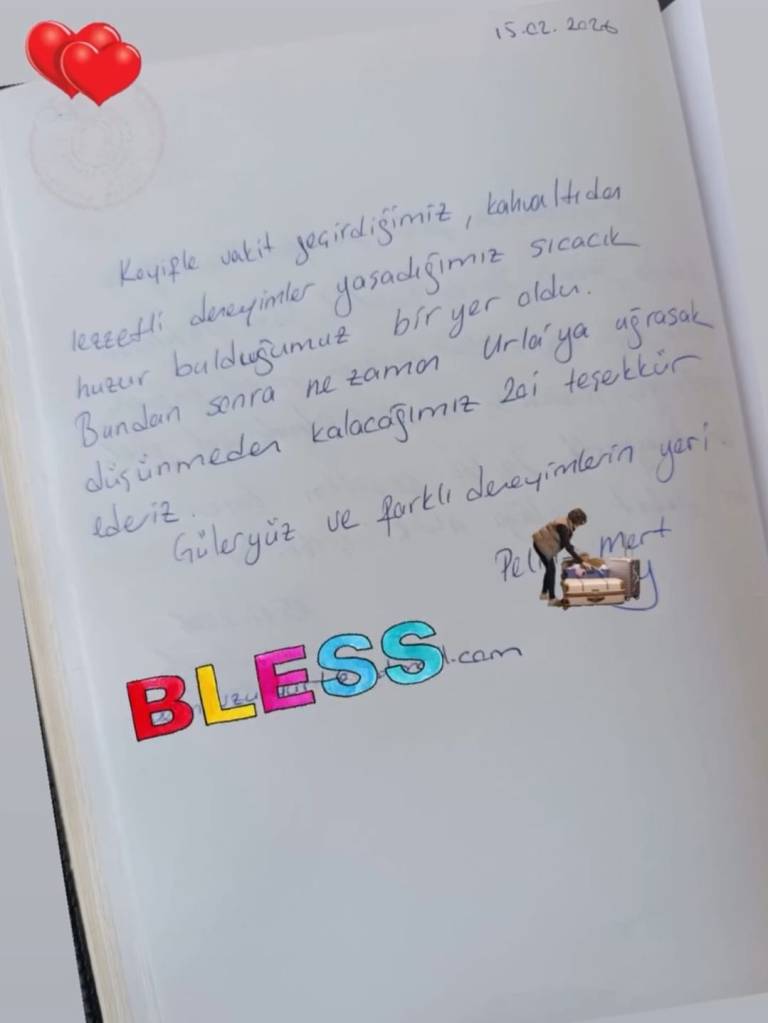 15.02.2026
Keyifle vakit geçirdiğimiz, kahvaltıdan
lezzetli deneyimler yaşadığımız sıcacık
huzur bulduğumuz bir yer oldu.
Bundan sonra ne zaman Urla'ya uğrasak
düşünmeden kalacağımız teşekkür
ederiz.
Güleryüz ve farklı deneyimlerin yeri.
Mert
BLESS